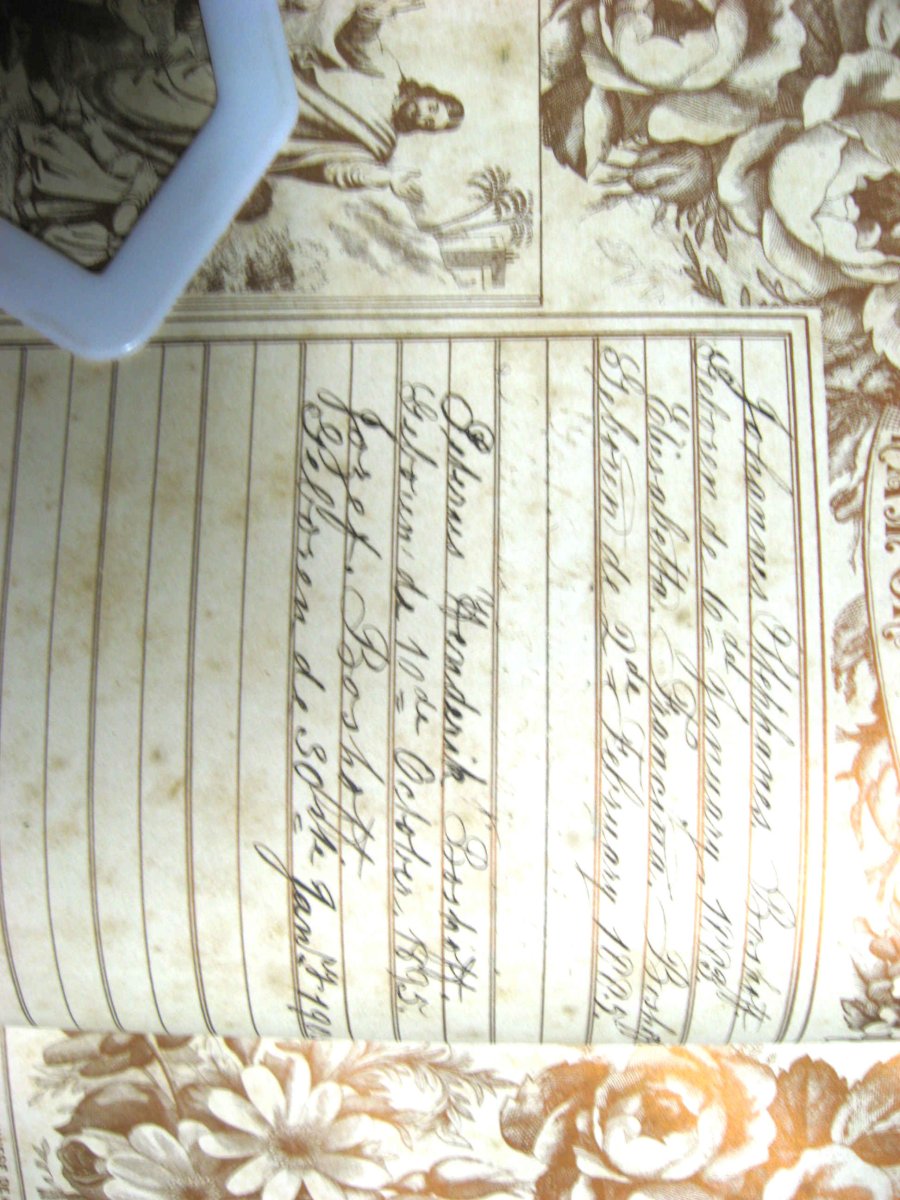 Johannes Stephanes Boshoff
Geboren de 6de January
Elizabetta. Francina. Bosho
Geboren de 2de February
Petrus Henderik Boshoff.
Geboren de 10de October. 1895.
Jozef. Boshoff
Geboren de 30ste Jany